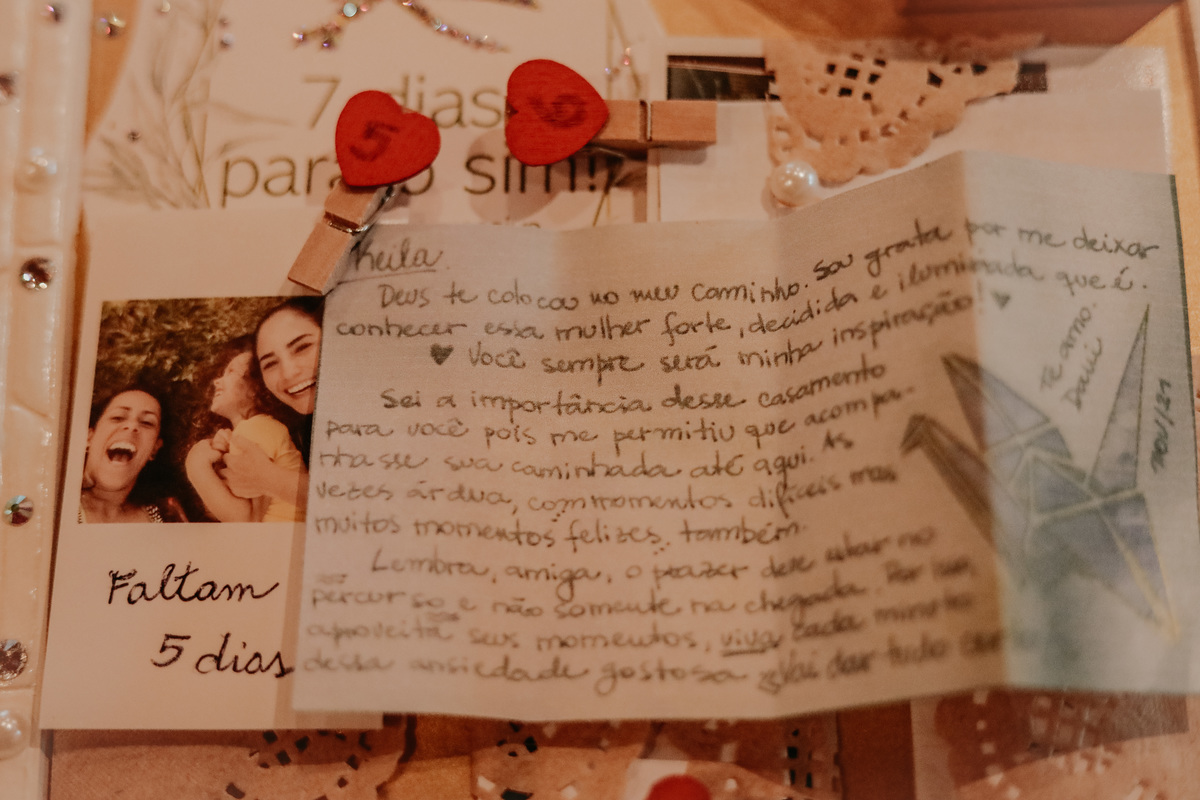 7 dias
para o sim!!
5
6
Keila.
Deus te colocou no meu caminho. Sou grata por me deixar
conhecer essa mulher forte, decidida e iluminada que é.
♥ Você sempre será minha inspiração! ♥
Sei a importância desse casamento
para você pois me permitiu que acompa-
nhasse sua caminhada até aqui. As
vezes árdua, com momentos difíceis mas
muitos momentos felizes, também.
Lembra, amiga, o prazer deve estar no
percurso e não somente na chegada. Por isso,
aproveita seus momentos, viva cada minuto
dessa ansiedade gostosa. Vai dar tudo
Te amo.
Dani
nov/21
Faltam
5 dias